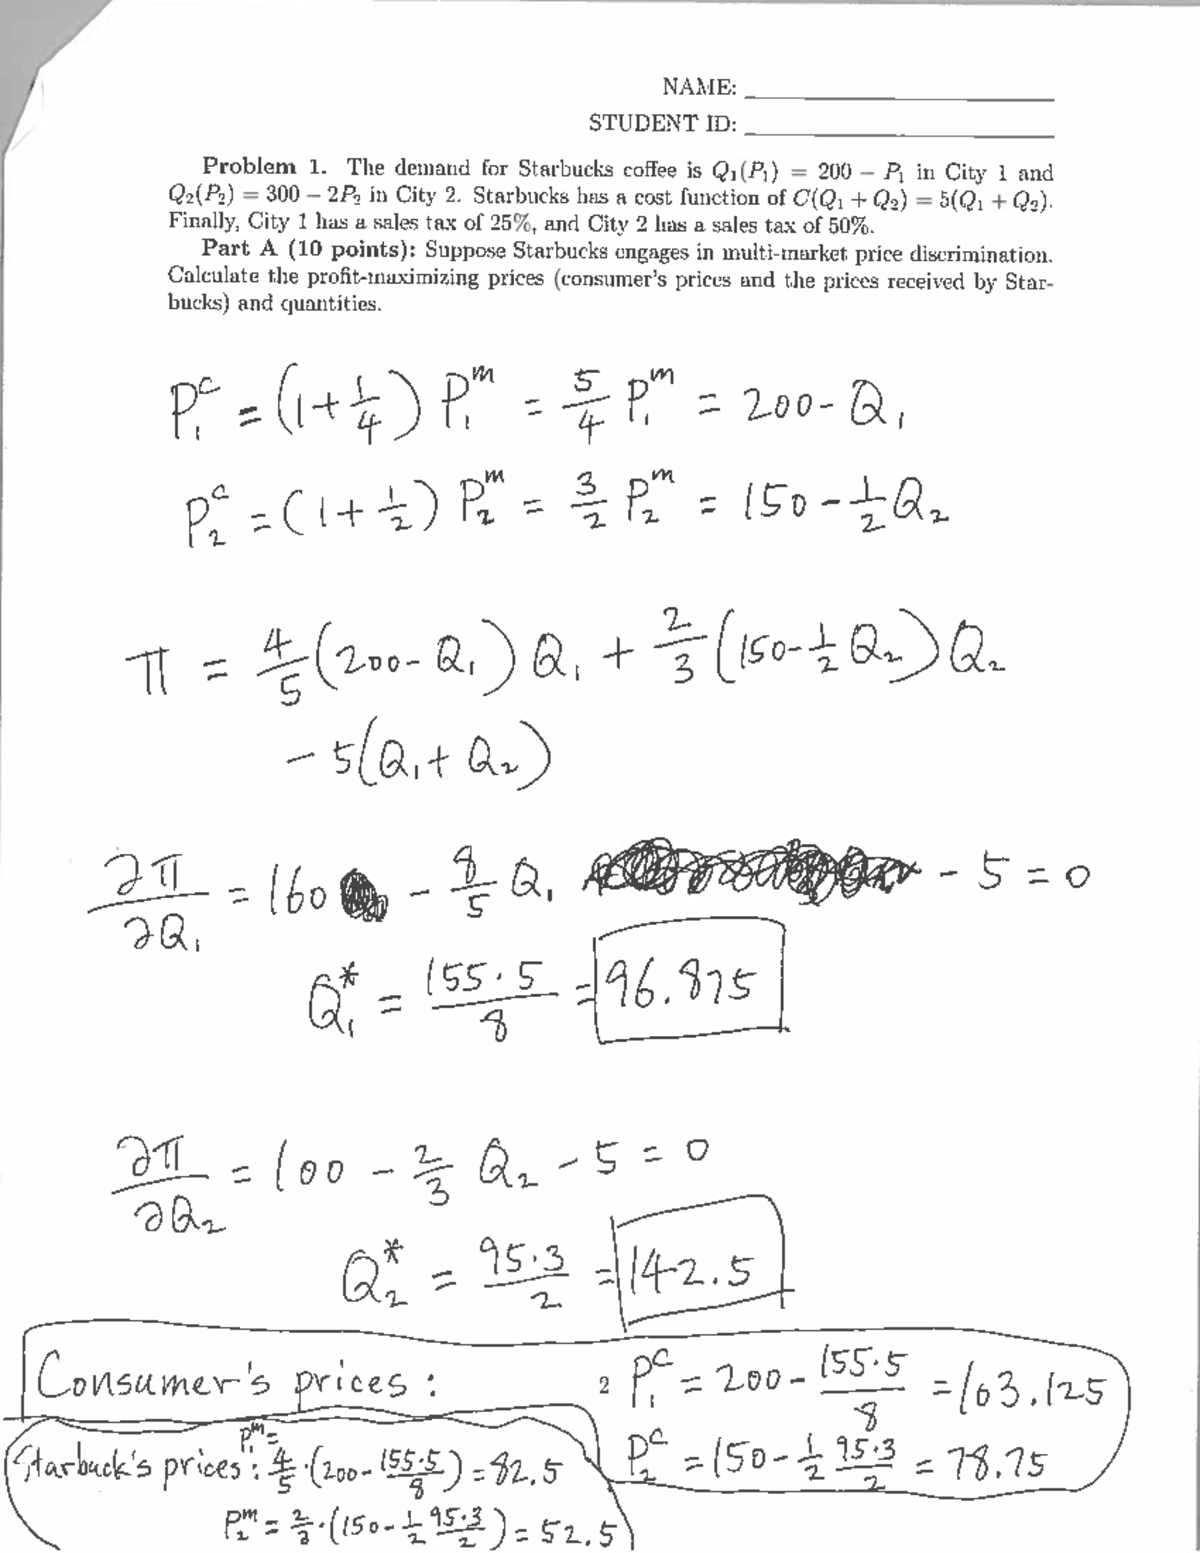 NAME:
STUDENT ID:
Problem 1. The demand for Starbucks coffee is Q₁(P₁) = 200 − P₁ in City 1 and
Q₂(P₂) = 300 − 2P₂ in City 2. Starbucks has a cost function of C(Q₁ + Q₂) = 5(Q₁ + Q₂).
Finally, City 1 has a sales tax of 25%, and City 2 has a sales tax of 50%.
Part A (10 points): Suppose Starbucks engages in multi-market price discrimination.
Calculate the profit-maximizing prices (consumer's prices and the prices received by Star-
bucks) and quantities.
P₁ᶜ = (1 + 1/4) P₁ᵐ = 5/4 P₁ᵐ = 200 - Q₁
P₂ᶜ = (1 + 1/2) P₂ᵐ = 3/2 P₂ᵐ = 150 - 1/2 Q₂
π = 4/5 (200 - Q₁) Q₁ + 2/3 (150 - 1/2 Q₂) Q₂
- 5(Q₁ + Q₂)
∂π/∂Q₁ = 160 - 8/5 Q₁ - 5 = 0
Q₁* = 155·5/8 = 96.875
∂π/∂Q₂ = 100 - 2/3 Q₂ - 5 = 0
Q₂* = 95·3/2 = 142.5
Consumer's prices :
2
P₁ᶜ = 200 - 155·5/8 = 103.125
P₂ᶜ = 150 - 1/2 95·3/2 = 78.75
P₁ᵐ =
Starbuck's prices : 4/5 · (200 - 155·5/8) = 82.5
P₂ᵐ = 2/3 · (150 - 1/2 95·3/2) = 52.5